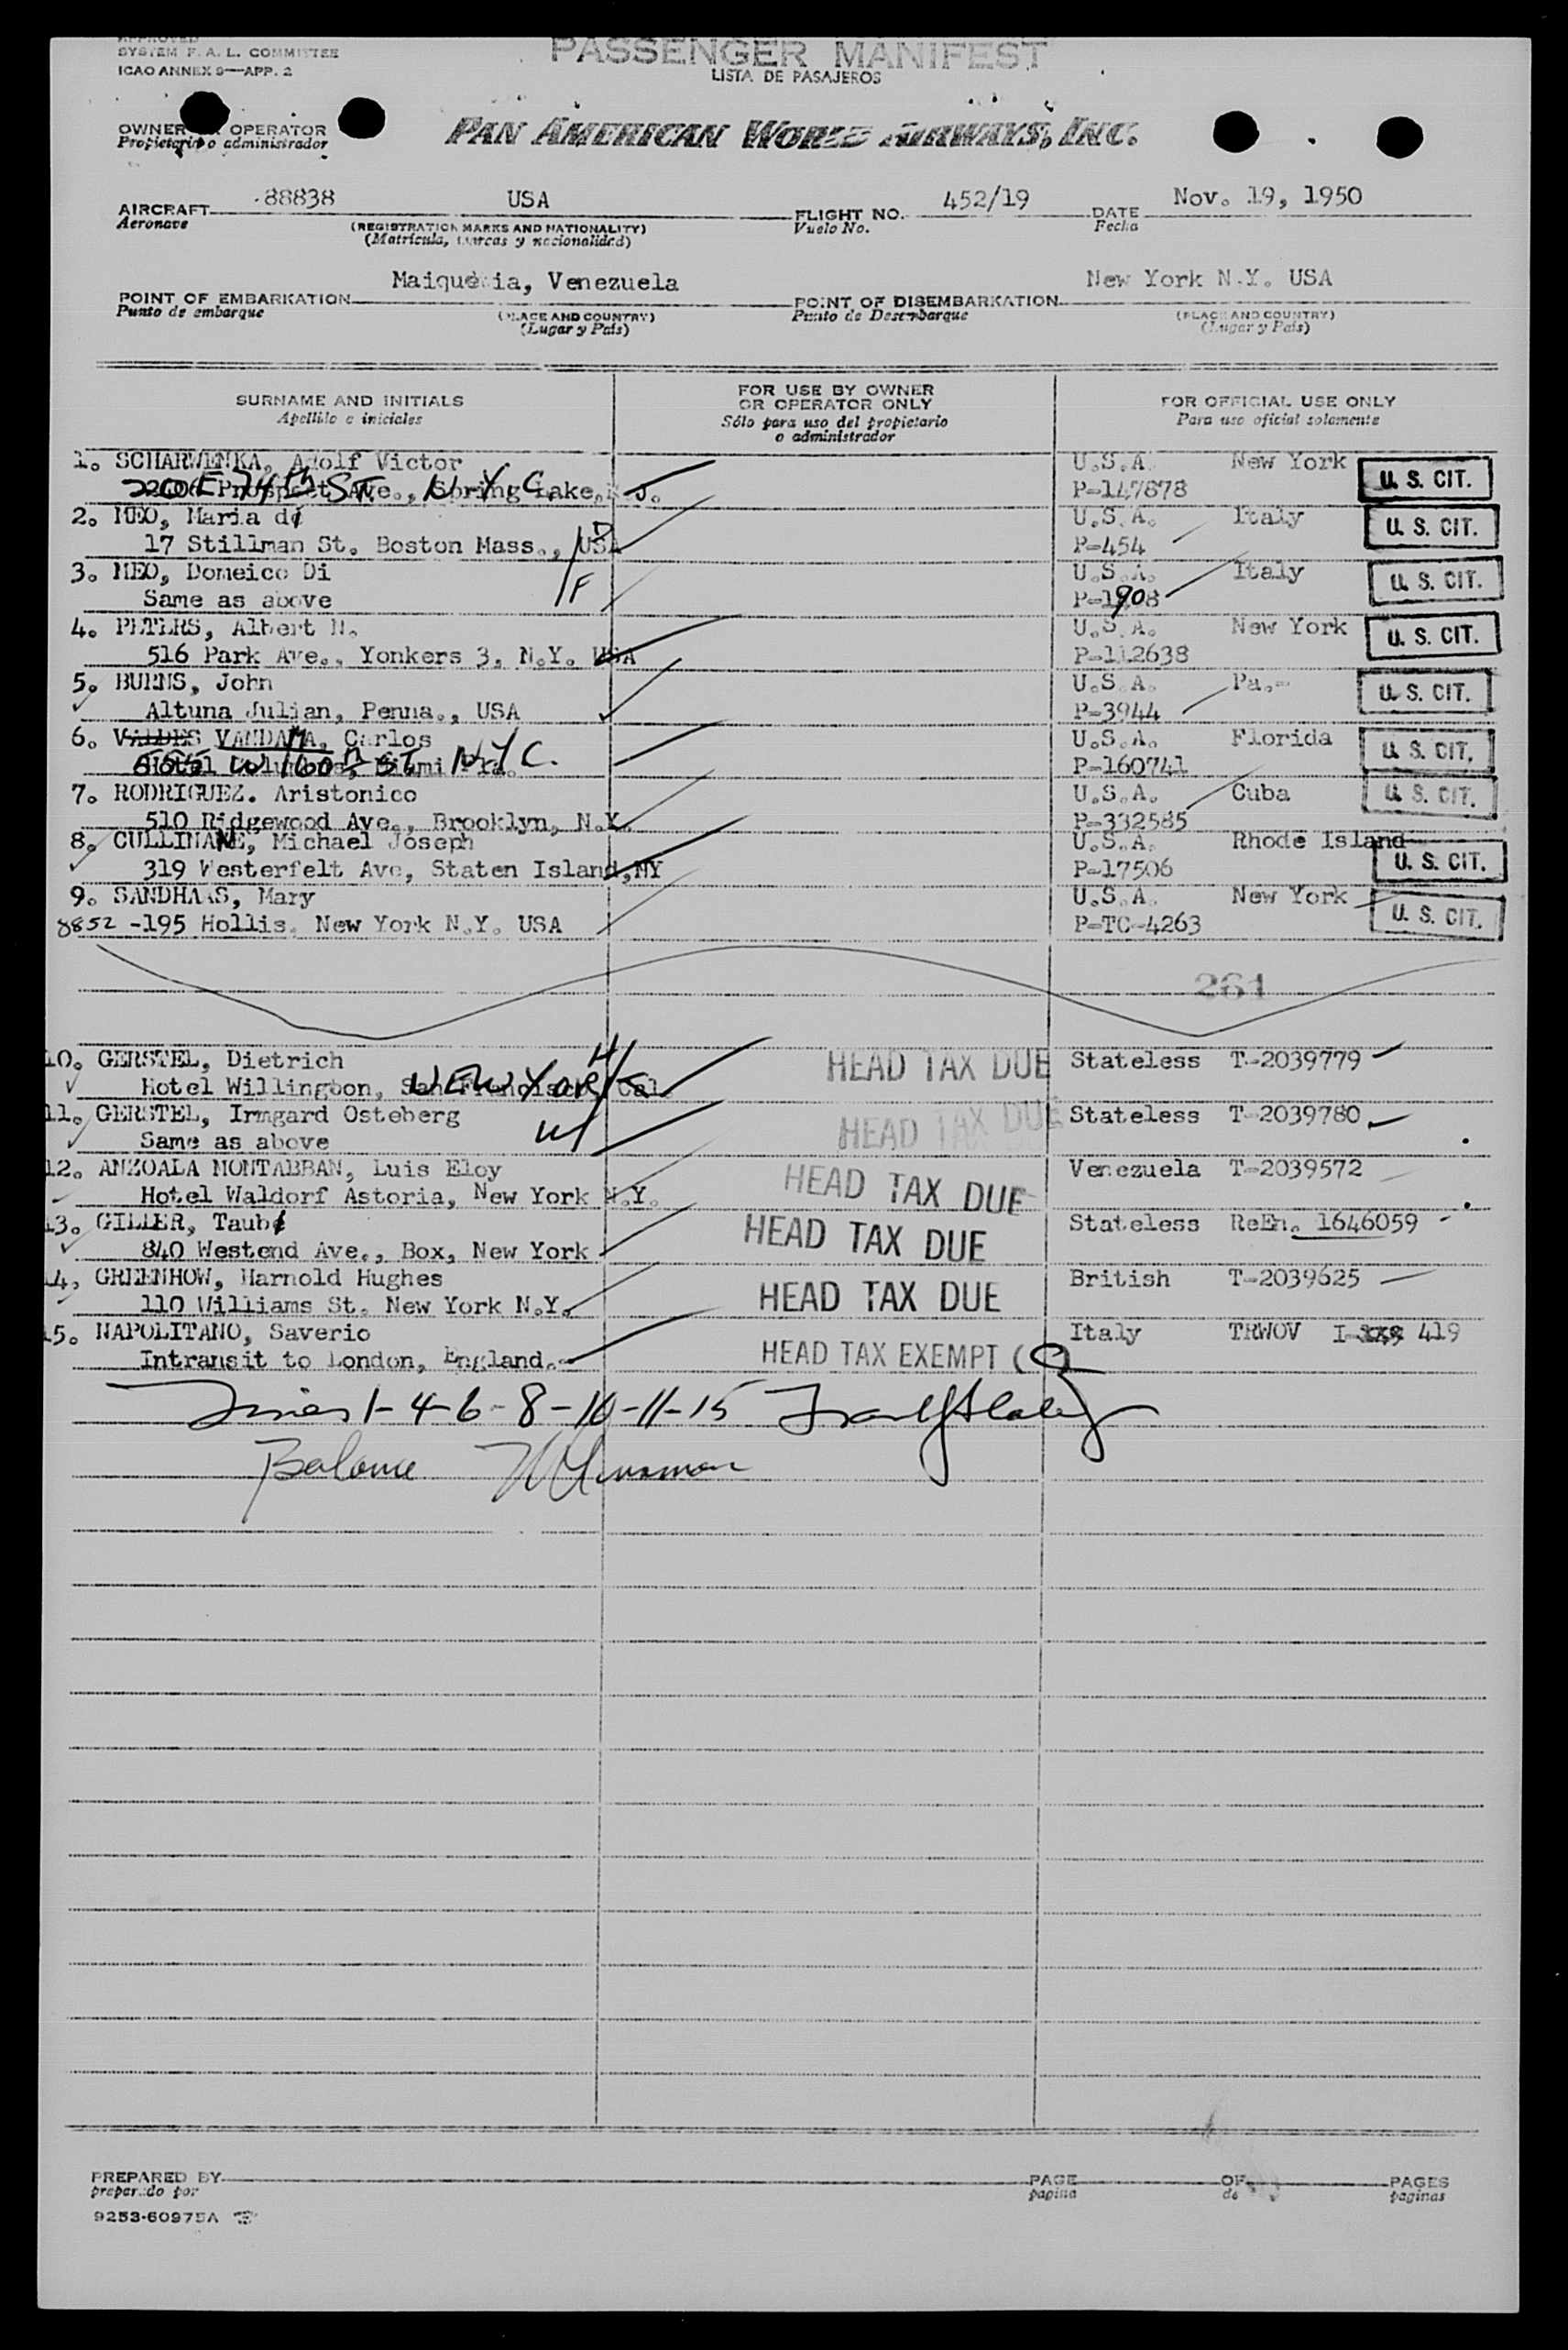 APPROVED
SYSTEM F. A. L. COMMITTEE
ICAO ANNEX 9—APP. 2
PASSENGER MANIFEST
LISTA DE PASAJEROS
OWNER OR OPERATOR
Propietario o administrador
PAN AMERICAN WORLD AIRWAYS, INC.
AIRCRAFT 88838 USA FLIGHT NO. 452/19 DATE Nov. 19, 1950
Aeronave (REGISTRATION MARKS AND NATIONALITY) Vuelo No. Fecha
(Matricula, marcas y nacionalidad)
POINT OF EMBARKATION Maiquetia, Venezuela POINT OF DISEMBARKATION New York N.Y. USA
Punto de embarque (PLACE AND COUNTRY) Punto de Desembarque (PLACE AND COUNTRY)
(Lugar y País) (Lugar y País)
SURNAME AND INITIALS FOR USE BY OWNER OR OPERATOR ONLY FOR OFFICIAL USE ONLY
Apellido e iniciales Sólo para uso del propietario o administrador Para uso oficial solamente
1. SCHARWENKA, Adolf Victor U.S.A. New York U. S. CIT.
Prospect Ave., Spring Lake, N.J. P-147878
20 E 74th ST. N.Y.C.
2. MEO, Maria di U.S.A. Italy U. S. CIT.
17 Stillman St. Boston Mass., USA P-454
3. MEO, Domeico Di U.S.A. Italy U. S. CIT.
Same as above F P-1908
4. PETERS, Albert N. U.S.A. New York U. S. CIT.
516 Park Ave., Yonkers 3, N.Y. USA P-112638
5. BURNS, John U.S.A. Pa.- U. S. CIT.
Altuna Julian, Penna., USA P-3944
6. VALDES VANDAMA, Carlos U.S.A. Florida U. S. CIT.
Hotel Miami Fla. P-160741
W 160 ST NYC.
7. RODRIGUEZ. Aristonico U.S.A. Cuba U. S. CIT.
510 Ridgewood Ave., Brooklyn, N.Y. P-332585
8. CULLINANE, Michael Joseph U.S.A. Rhode Island U. S. CIT.
319 Westerfelt Ave, Staten Island,NY P-17506
9. SANDHAAS, Mary U.S.A. New York U. S. CIT.
8852 -195 Hollis. New York N.Y. USA P-TC-4263
261
10. GERSTEL, Dietrich H HEAD TAX DUE Stateless T-2039779
Hotel Willingbon, San Francisco, Cal. NEW YORK
11. GERSTEL, Irmgard Osteberg W HEAD TAX DUE Stateless T-2039780
Same as above
12. ANZOALA MONTABBAN, Luis Eloy HEAD TAX DUE Venezuela T-2039572
Hotel Waldorf Astoria, New York N.Y.
13. GILLER, Taube HEAD TAX DUE Stateless ReEn. 1646059
840 Westend Ave., Box, New York
14, GREENHOW, Harnold Hughes HEAD TAX DUE British T-2039625
110 Williams St. New York N.Y.
15. NAPOLITANO, Saverio HEAD TAX EXEMPT Italy TRWOV I- 419
Intransit to London, England.
1-4-6-8-10-11-15
Balance
PREPARED BY PAGE OF PAGES
preparado por pagina de paginas
9253-60975A